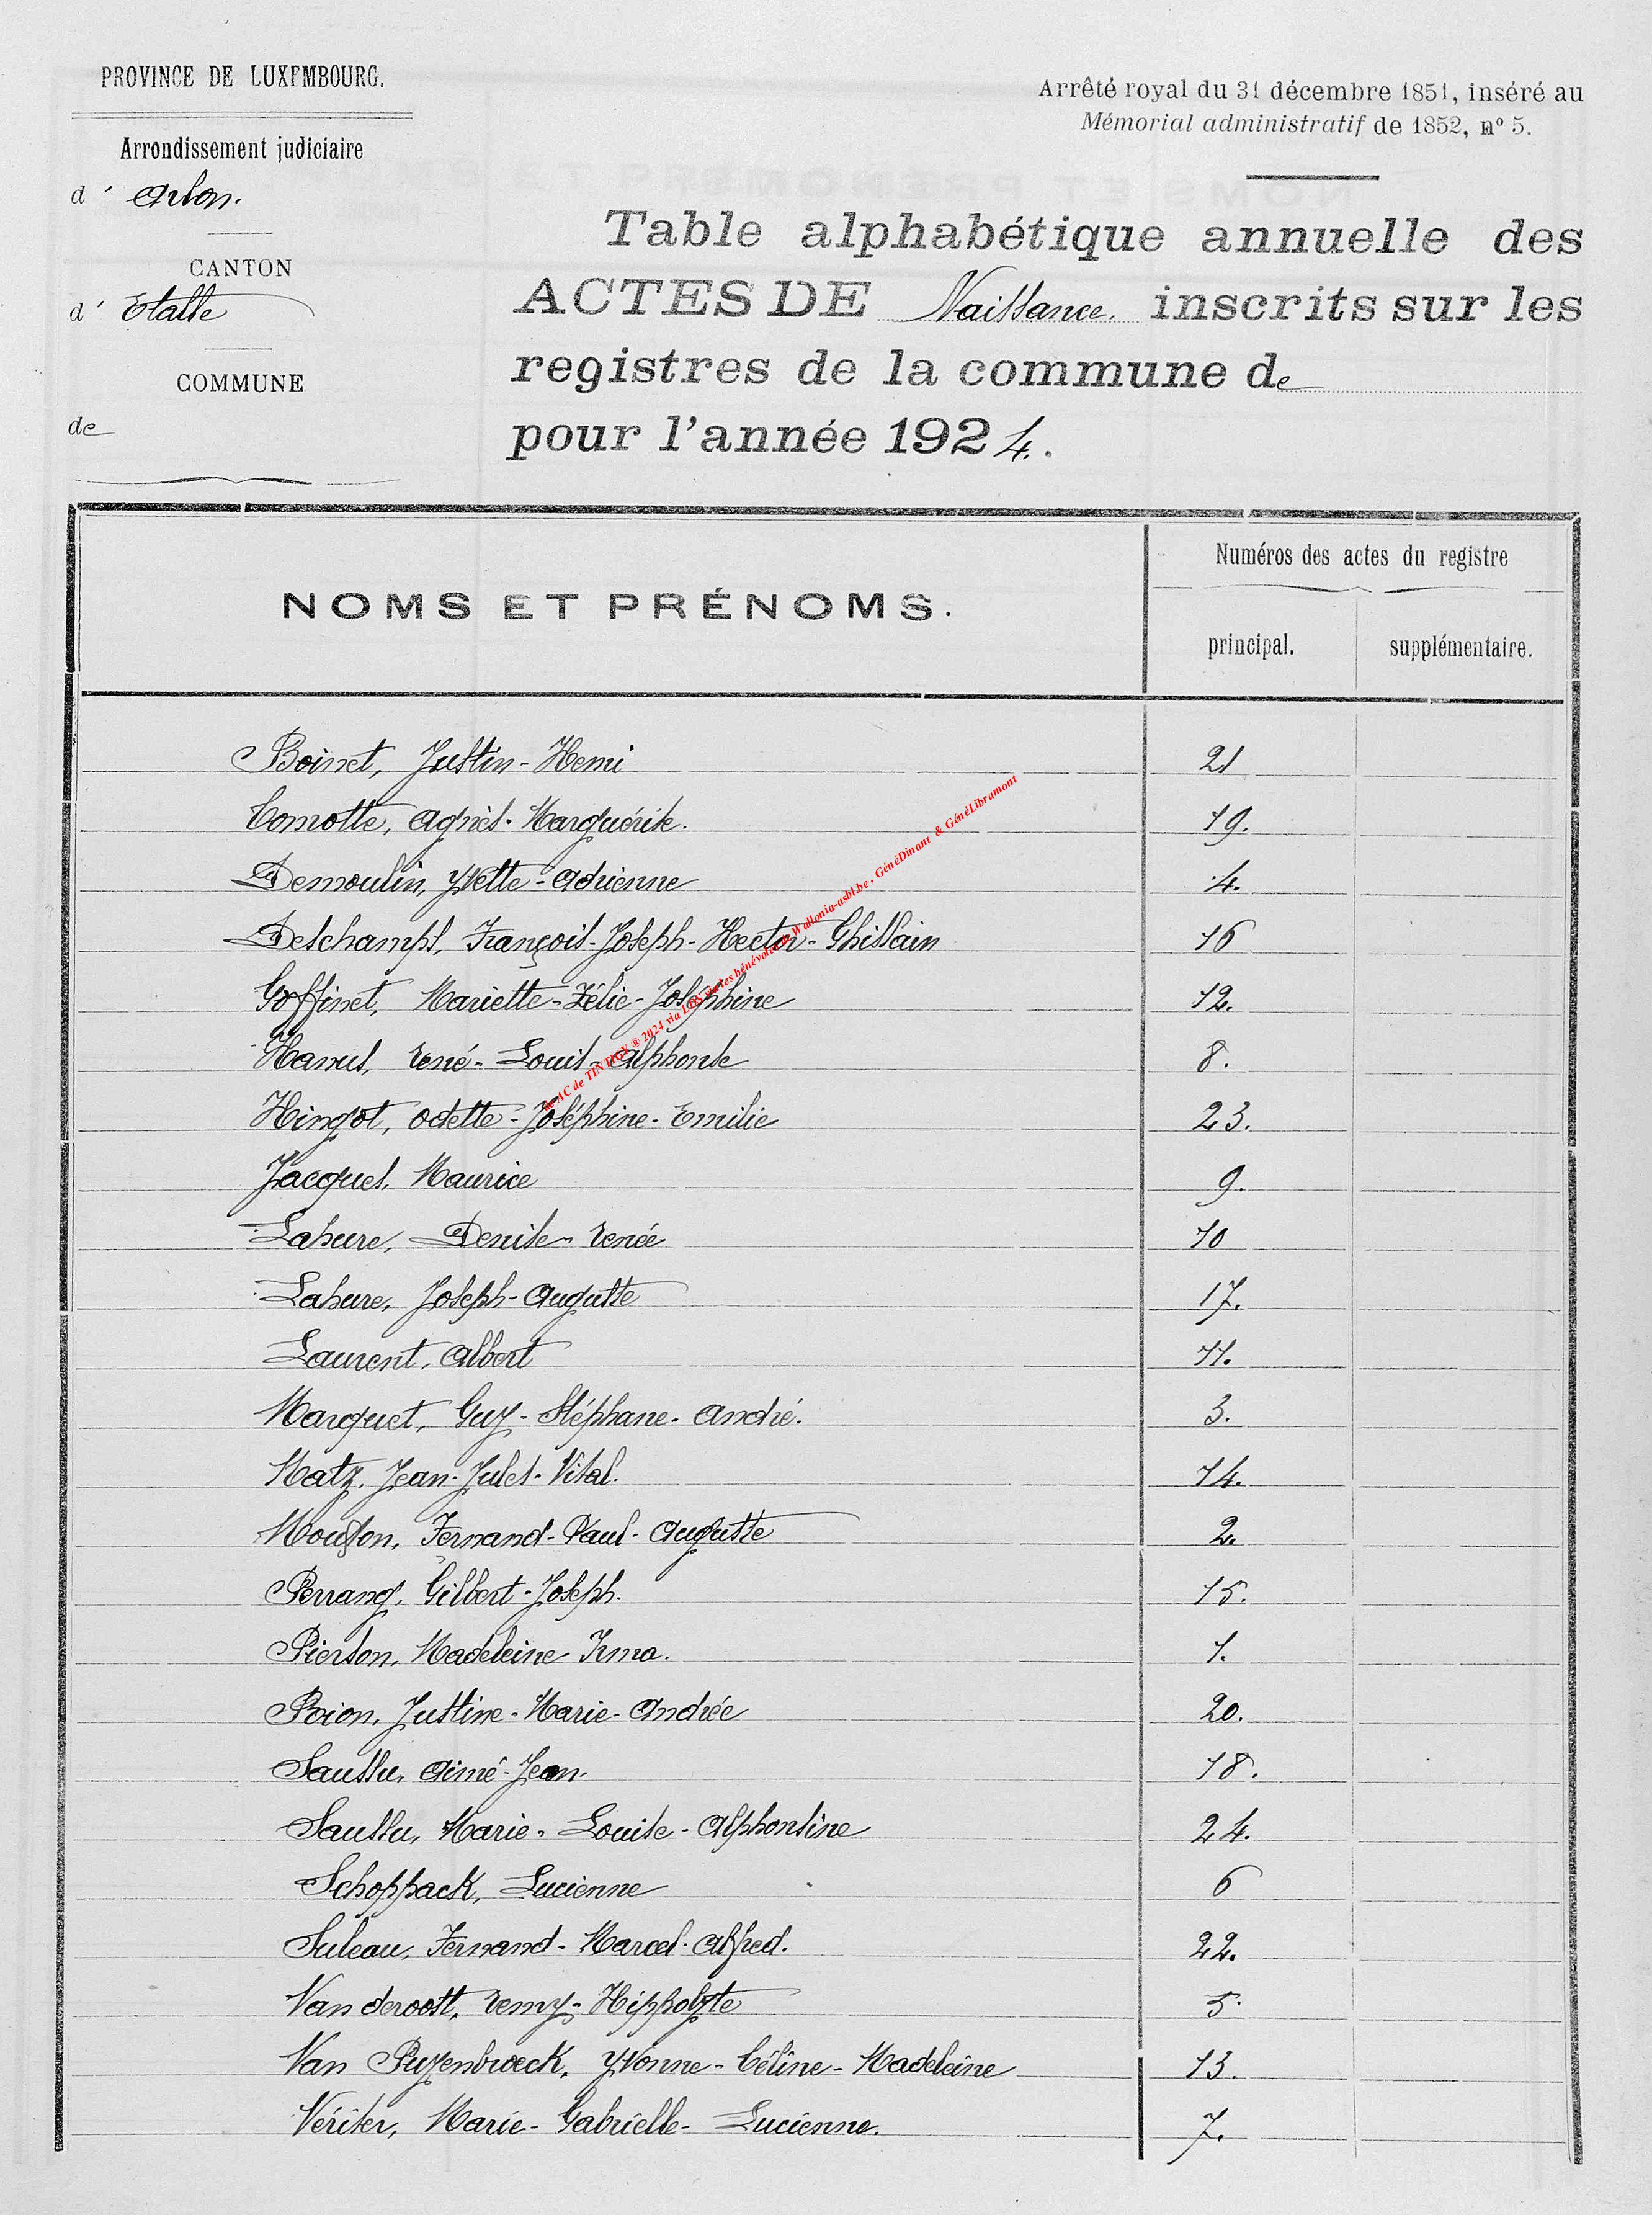 PROVINCE DE LUXEMBOURG.
Arrondissement judiciaire
d' Arlon.
CANTON
d' Etalle
COMMUNE
de
Arrêté royal du 31 décembre 1851, inséré au
Mémorial administratif de 1852, nº 5.
Table alphabétique annuelle des
ACTES DE Naissance. inscrits sur les
registres de la commune de
pour l'année 1924.
NOMS ET PRÉNOMS.
Numéros des actes du registre
principal.
supplémentaire.
Boinet, Justin-Henri 21
Comotte, Agnès-Marguérite. 19.
Demoulin, Yvette-Adrienne 4.
Deschamps, François-Joseph-Hector-Ghislain 16
Goffinet, Mariette-Zélie-Joséphine 12.
Hanus, René-Louis-Alphonse 8.
Hingot, Odette-Joséphine-Emilie 23.
Jacques, Maurice 9.
Lahure, Denise-Renée 10
Lahure, Joseph-Auguste 17.
Laurent, Albert 11.
Marquet, Guy-Stéphane-André. 3.
Matz, Jean-Jules-Vital. 14.
Mouson, Fernand-Paul-Auguste 2.
Perrang, Gilbert-Joseph. 15.
Pierson, Madeleine-Irma. 1.
Poion, Justine-Marie-Andrée 20.
Saussu, Aimé-Jean. 18.
Saussu, Marie-Louise-Alphonsine 24.
Schoppack, Lucienne 6
Suleau, Fernand-Marcel-Alfred. 22.
Vanderoost, Remy-Hippolyte 5.
Van Puyenbroeck, Yvonne-Céline-Madeleine 13.
Vériter, Marie-Gabrielle-Lucienne. 7.
AC de TINTIGNY ® 2024 via les bénévoles de Wallonia-asbl.be, GénéDinant & GénéLibramont